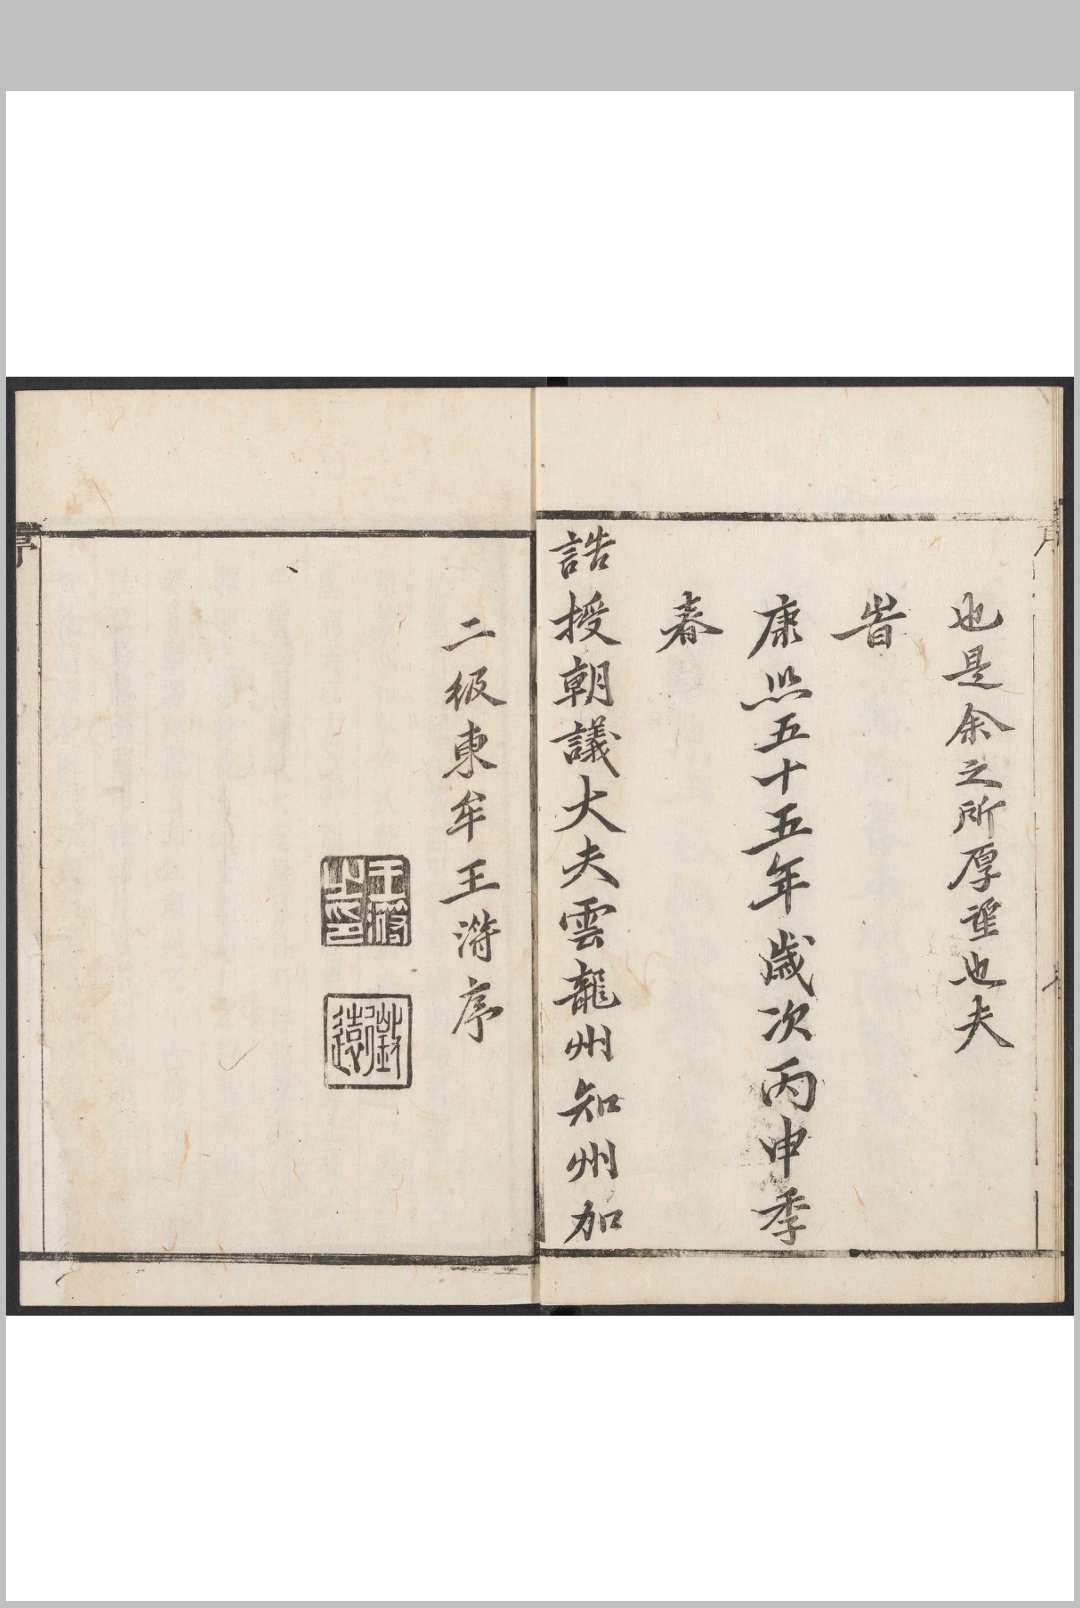 序
也是余之所厚望也夫
旹
康熙五十五年歲次丙申季
春
誥授朝議大夫雲龍州知州加
二級東牟王序
王之印
序